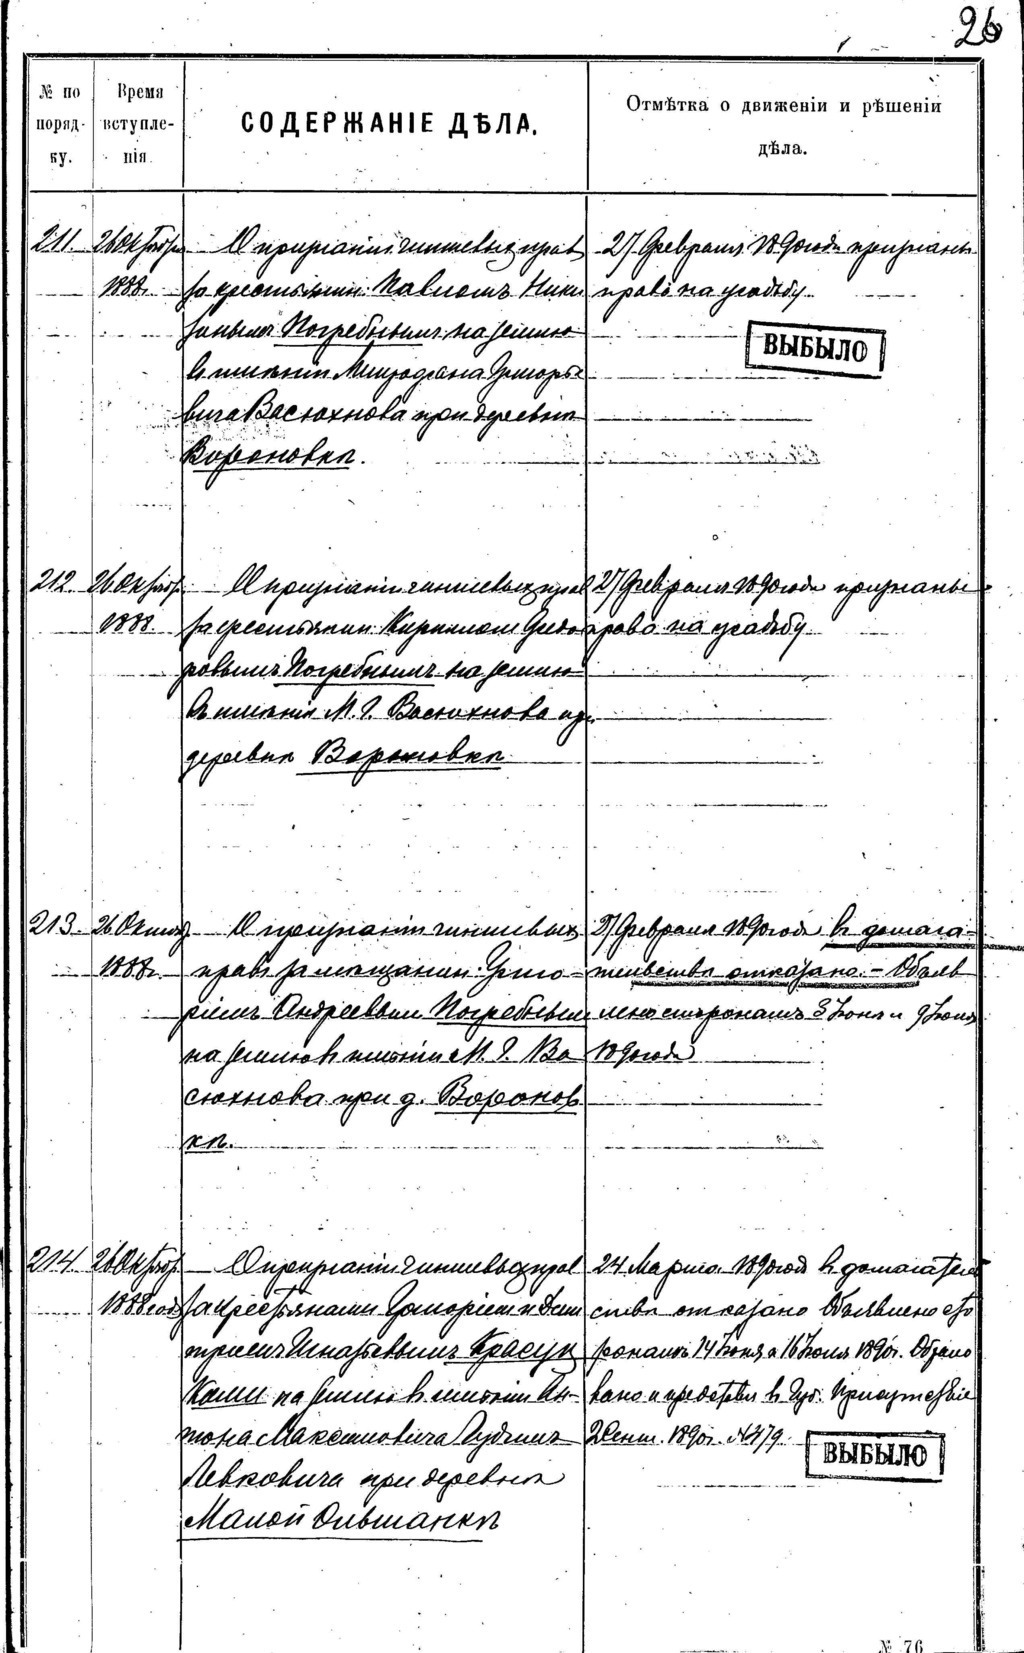 26
№ по поряд- ку.
Время вступле- нія.
СОДЕРЖАНІЕ ДѢЛА.
Отмѣтка о движеніи и рѣшеніи дѣла.
211. 26 Октября 1888.
О признаніи чиншевыхъ правъ
за крестьянин. Павломъ Ники
Погребнымъ на землю
въ имѣніи Митрофана Григорье
вича Васюхнова при деревнѣ
Вороновкѣ.
27 Февраля 1890 года признаны
право на усадьбу
ВЫБЫЛО
212. 26 Октябр. 1888.
О признаніи чиншевыхъ прав
за крестьянин. Кириломъ Федо
ровымъ Погребнымъ на землю
въ имѣніи М. Г. Васюхнова при
деревнѣ Вороновкѣ
27 Февраля 1890 года признаны
право на усадьбу
213. 26 Октяб. 1888г.
О признаніи чиншевыхъ
правъ за мещанин. Григо-
ріемъ Андреевым Погребным
на землю въ имѣніи М. Г. Ва
сюхнова при д. Воронов
кѣ.
27 Февраля 1890 года въ домага-
тельствѣ отказано. - Объяв
лено сторонамъ 8 Іюня и 9 Іюня
1890 года
214. 26 Октяб. 1888 год
О признаніи чиншевыхъ прав
за крестьянами Григоріем и Дми
тріемъ Игнатьевымъ Красух
Ками на землю въ имѣніи Ан-
тона Максимовича
Левковича при деревнѣ
Малой Ольшанкѣ
24 Марта 1890 год въ домагатель
ствѣ отказано Объявлено сто
ронамъ 14 Іюня и 16 Іюля 1890г. Обжало
вано и представл. в Губ. Присутствіе
2 Сент. 1890г. №479.
ВЫБЫЛО
№ 76